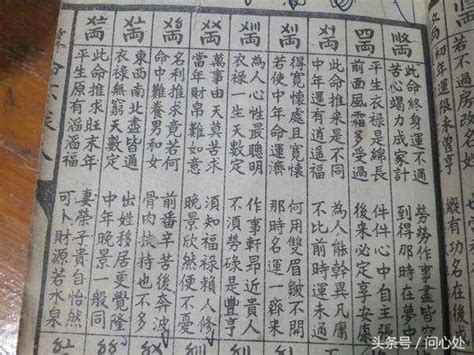 若不過房改名
初年運限未曾亨
此命終身運不通 勞勞作事盡皆空
苦心竭力成家計 到得那時在夢中
四両
平生衣祿是綿長 件件心中自主張
前面風霜多受過 後來必定享安康
此命推來是不同 為人能幹異凡庸
中年還有逍遙福 不比前時運來通
得寬懷處且寬懷 何用雙眉皺不開
若使中年命運濟 那時名利一齊來
為人心性最聰明 作事軒昂近貴人
衣祿一生天數定 不須勞碌是豐亨
萬事由天莫苦求 須知福祿賴人修
當年財帛難如意 晚景欣然便不憂
名利推求竟若何 前番辛苦後奔波
命中難養男和女 骨肉扶持也不多
東西南北盡皆通 出姓移居更覺隆
衣祿無窮天數定 中年晚景一般同
此命推求旺末年 妻榮子貴自怡然
平生原有滔滔福 可卜財源若水泉
头条号 / 问心处